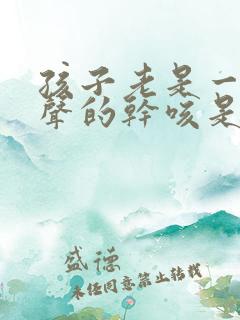 孩子老是一
聲的幹咳是
盛德
未经同意禁止转载